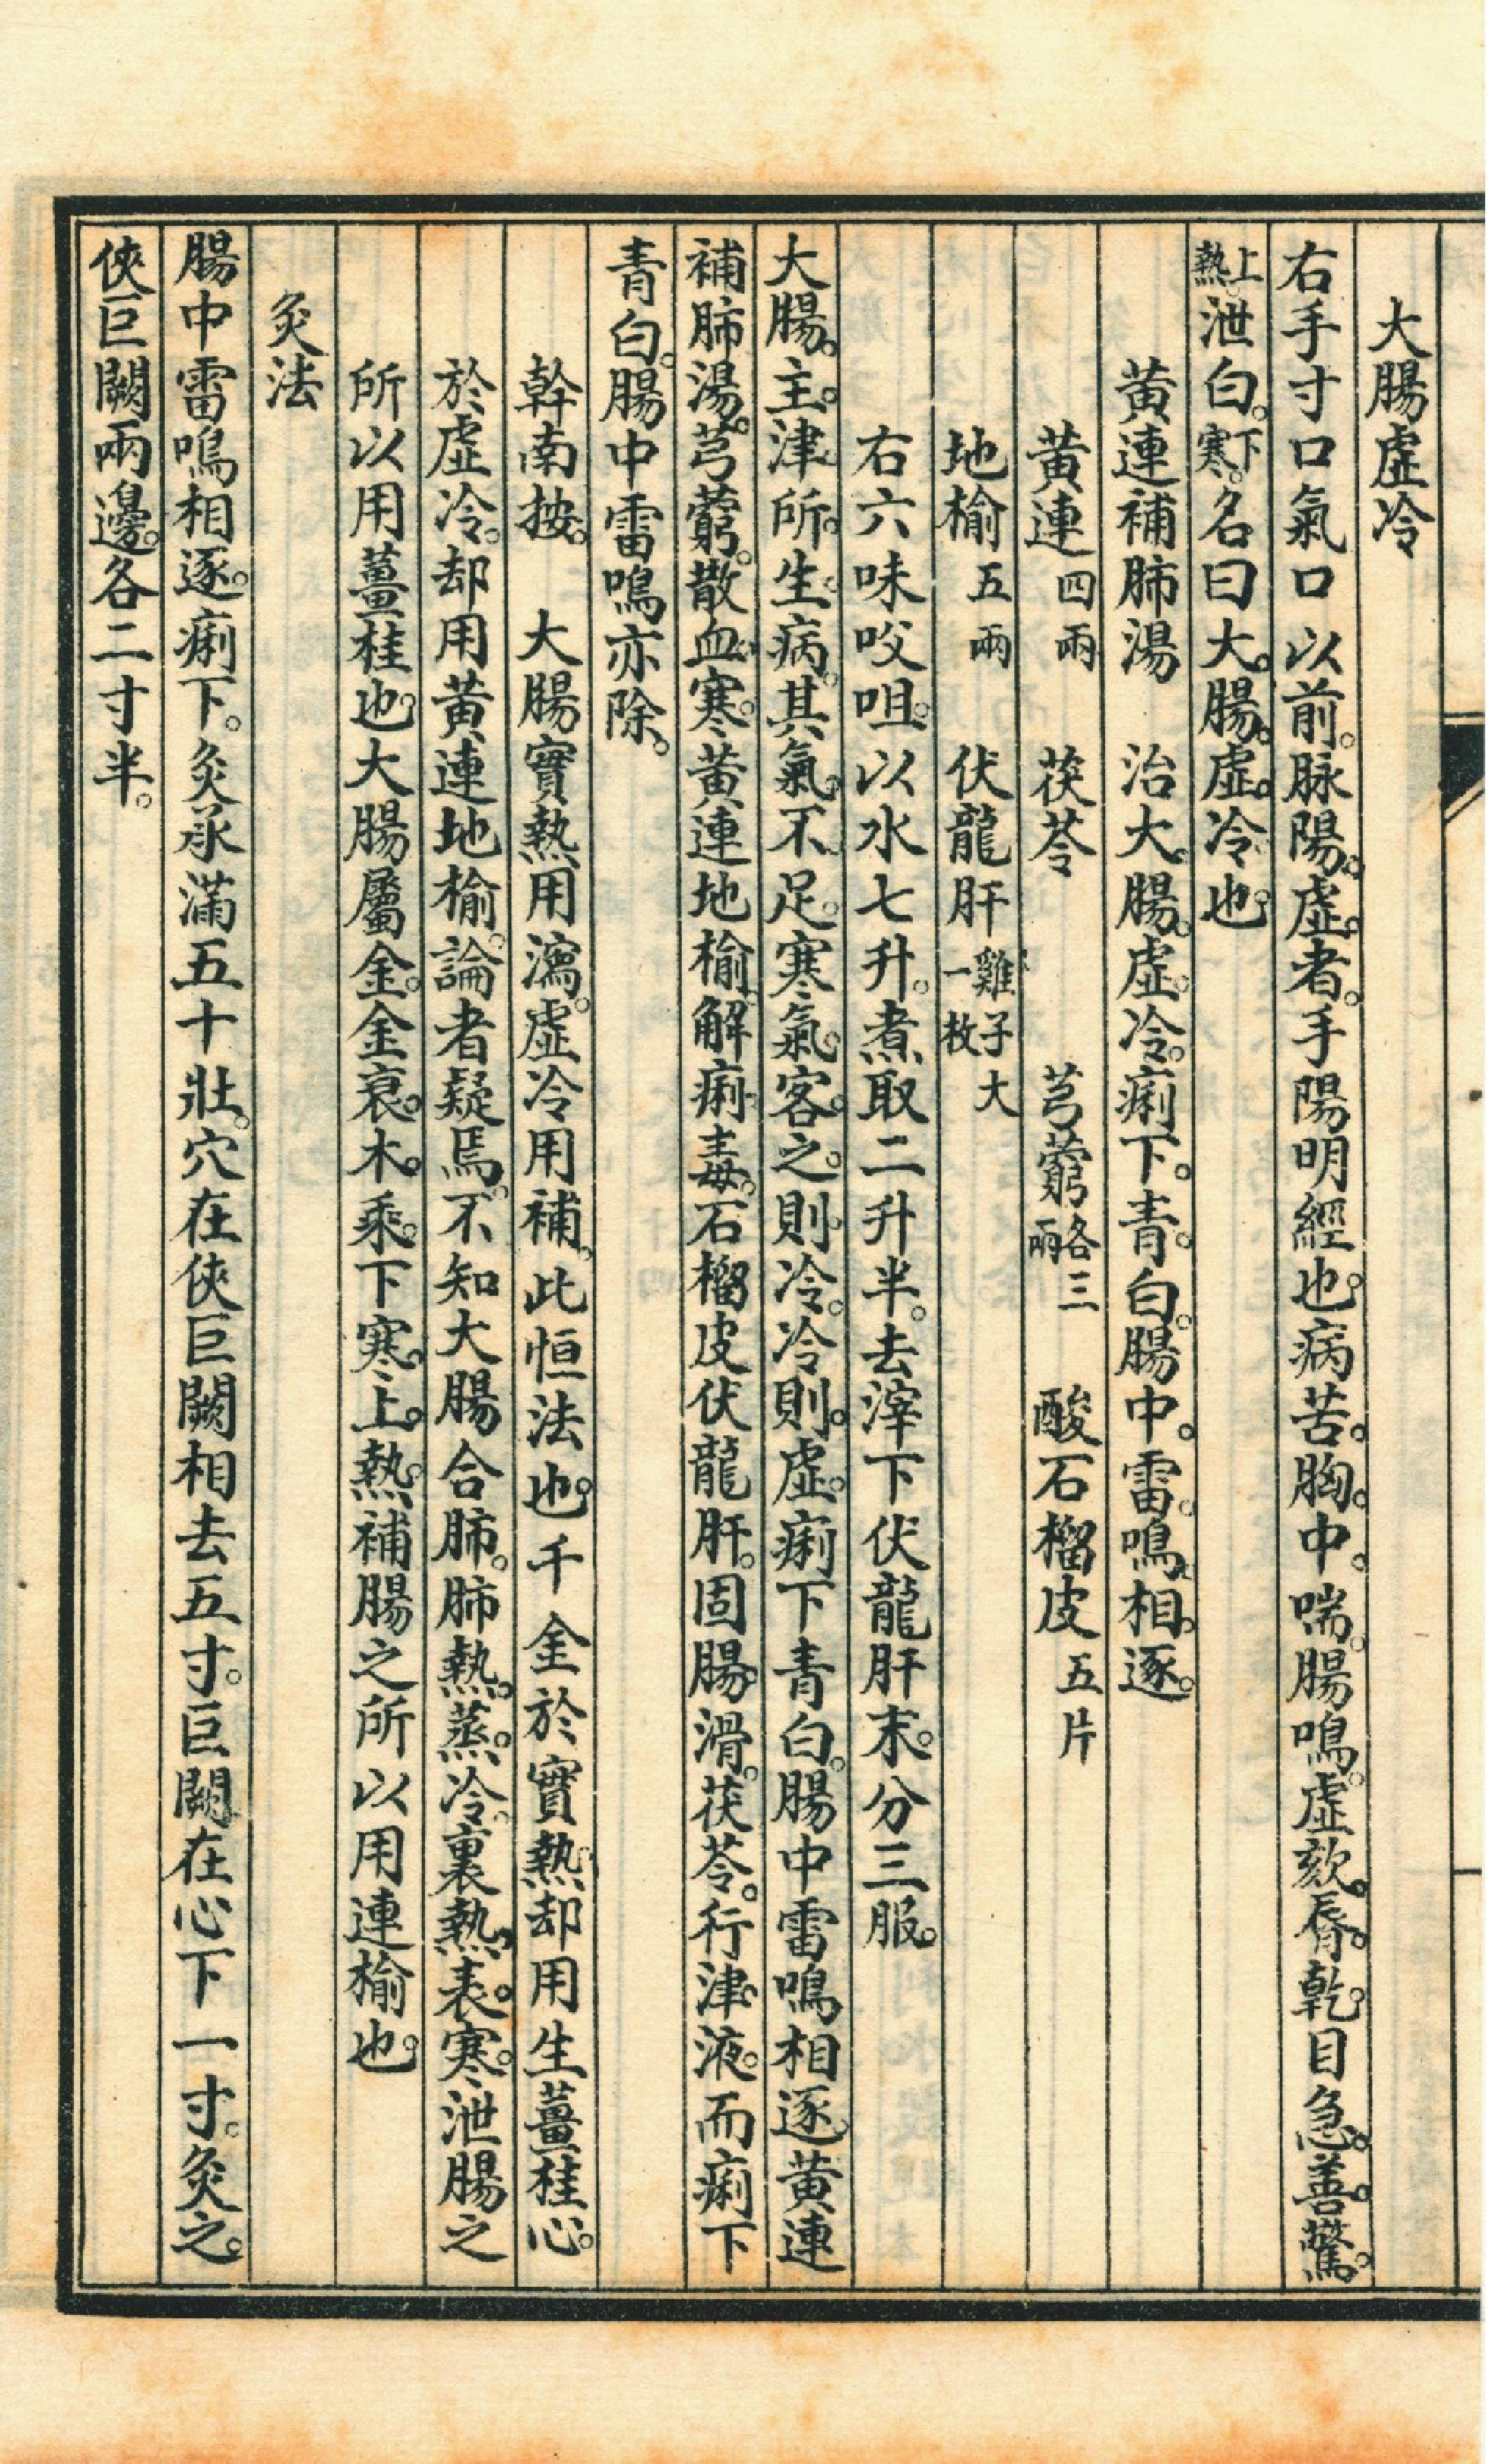 大腸虛冷
右手寸口氣口以前。脉陽。虛。者。手陽明經也。病苦。胸。中。喘。腸鳴。虛欬。脣。乾。目急。善。驚。
熱上。泄白。寒下。名曰大。腸。虛。冷。也。
黃連補肺湯　治大。腸。虛。冷。痢下。青。白。腸中。雷。鳴。相。逐。
黃連四兩　茯苓　芎藭各三兩　酸石榴皮五片
地榆五兩　伏龍肝雞子大一枚
右六味㕮咀。以水七升。煮取二升半。去滓下伏龍肝末。分三服。
大腸。主。津。所。生。病。其氣。不。足。寒氣。客。之。則。冷。冷則。虛。痢下青白。腸中雷鳴相逐。黃連
補肺湯。芎藭。散血。寒。黃連地榆。解痢。毒。石榴皮伏龍肝。固腸。滑。茯苓。行津。液。而痢下
青白。腸中雷鳴亦除。
幹南按。　大腸實熱用瀉。虛冷用補。此恒法也。千金於實熱。却用生薑桂心。
於虛冷。却用黃連地榆。論者疑焉。不知大腸合肺。肺熱。蒸。冷。裏熱。表。寒。泄腸之
所以用薑桂也。大腸屬金。金衰。木。乘。下寒。上。熱。補腸之所以用連榆也。
灸法
腸中雷鳴相逐。痢下。灸承滿五十壯。穴在俠巨闕相去五寸。巨闕在心下一寸。灸之。
俠巨闕兩邊。各二寸半。